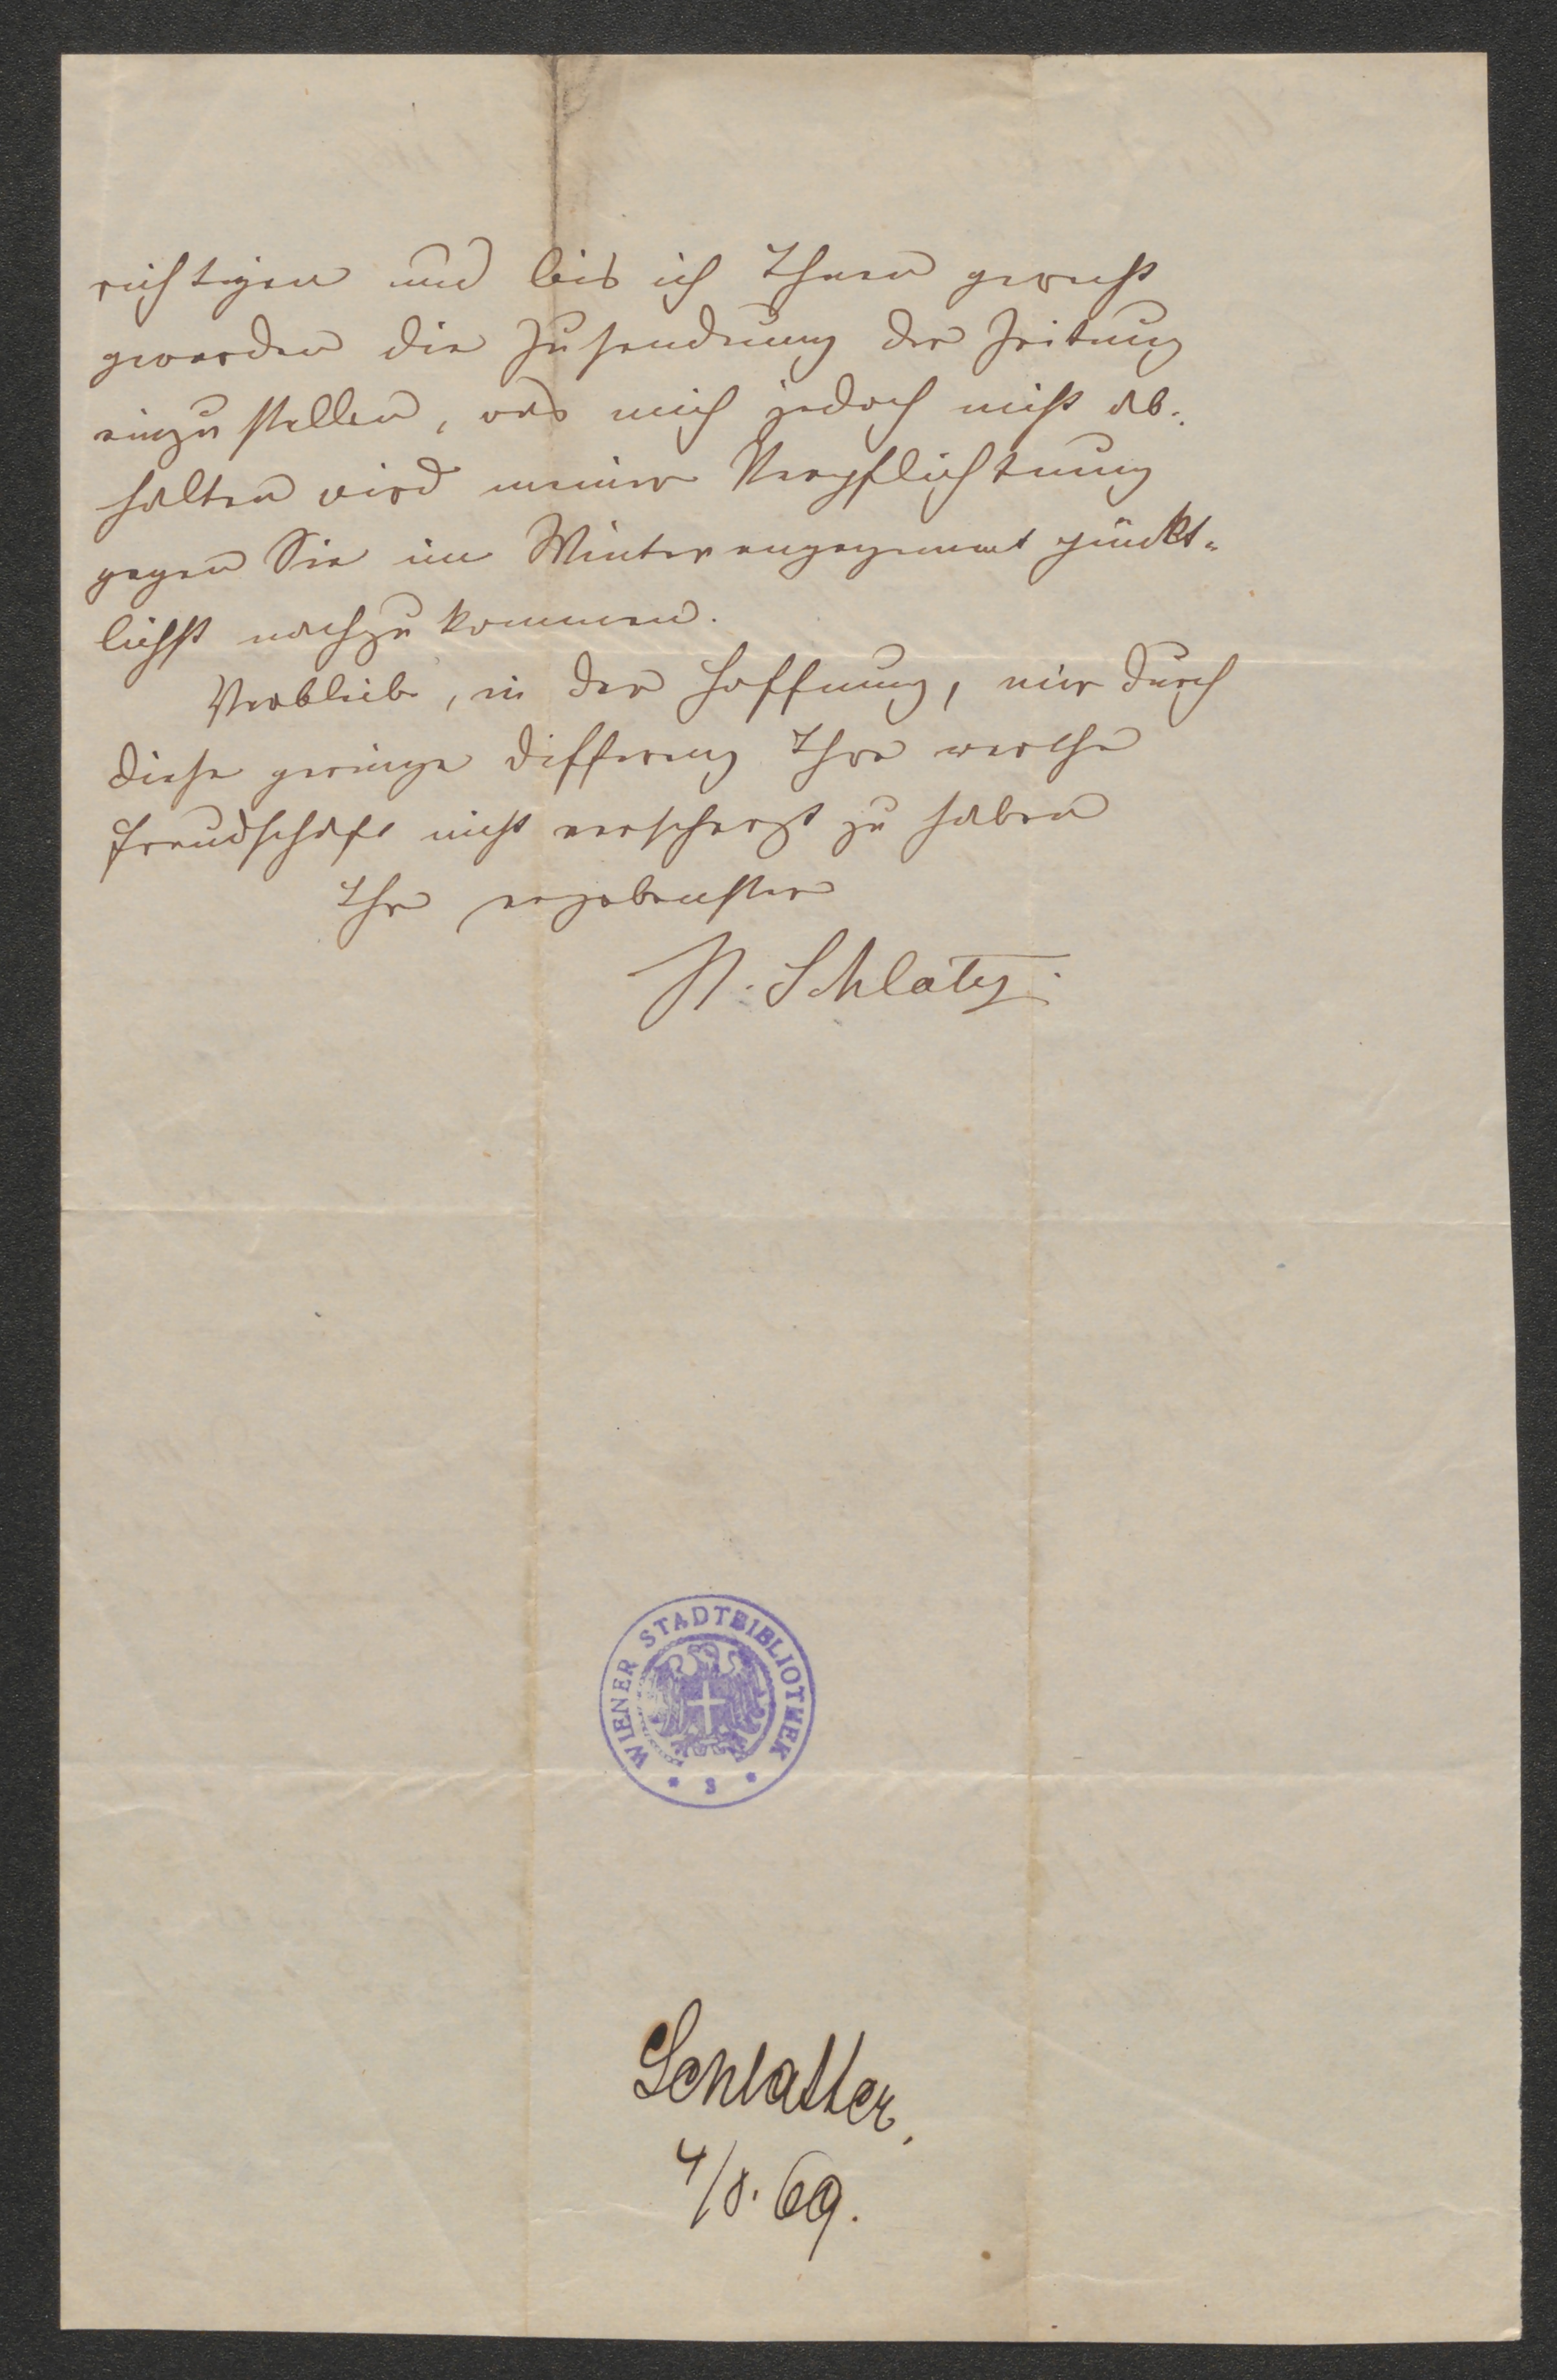 richtigen und bis ich Ihnen gerecht
geworden die Zusendung der Zeitung
einzustellen, was mich jedoch nicht ab-
halten wird meiner Verpflichtung
gegen Sie im Winterengagement pünkt-
lichst nachzukommen.
Verbleibe, in der Hoffnung, mir durch
diese geringe Differenz Ihre werthe
Freundschaft nicht verscherzt zu haben
Ihr ergebenster
Schlatter
WIENER STADTBIBLIOTHEK
* S *
Schlatter,
4/8. 69.